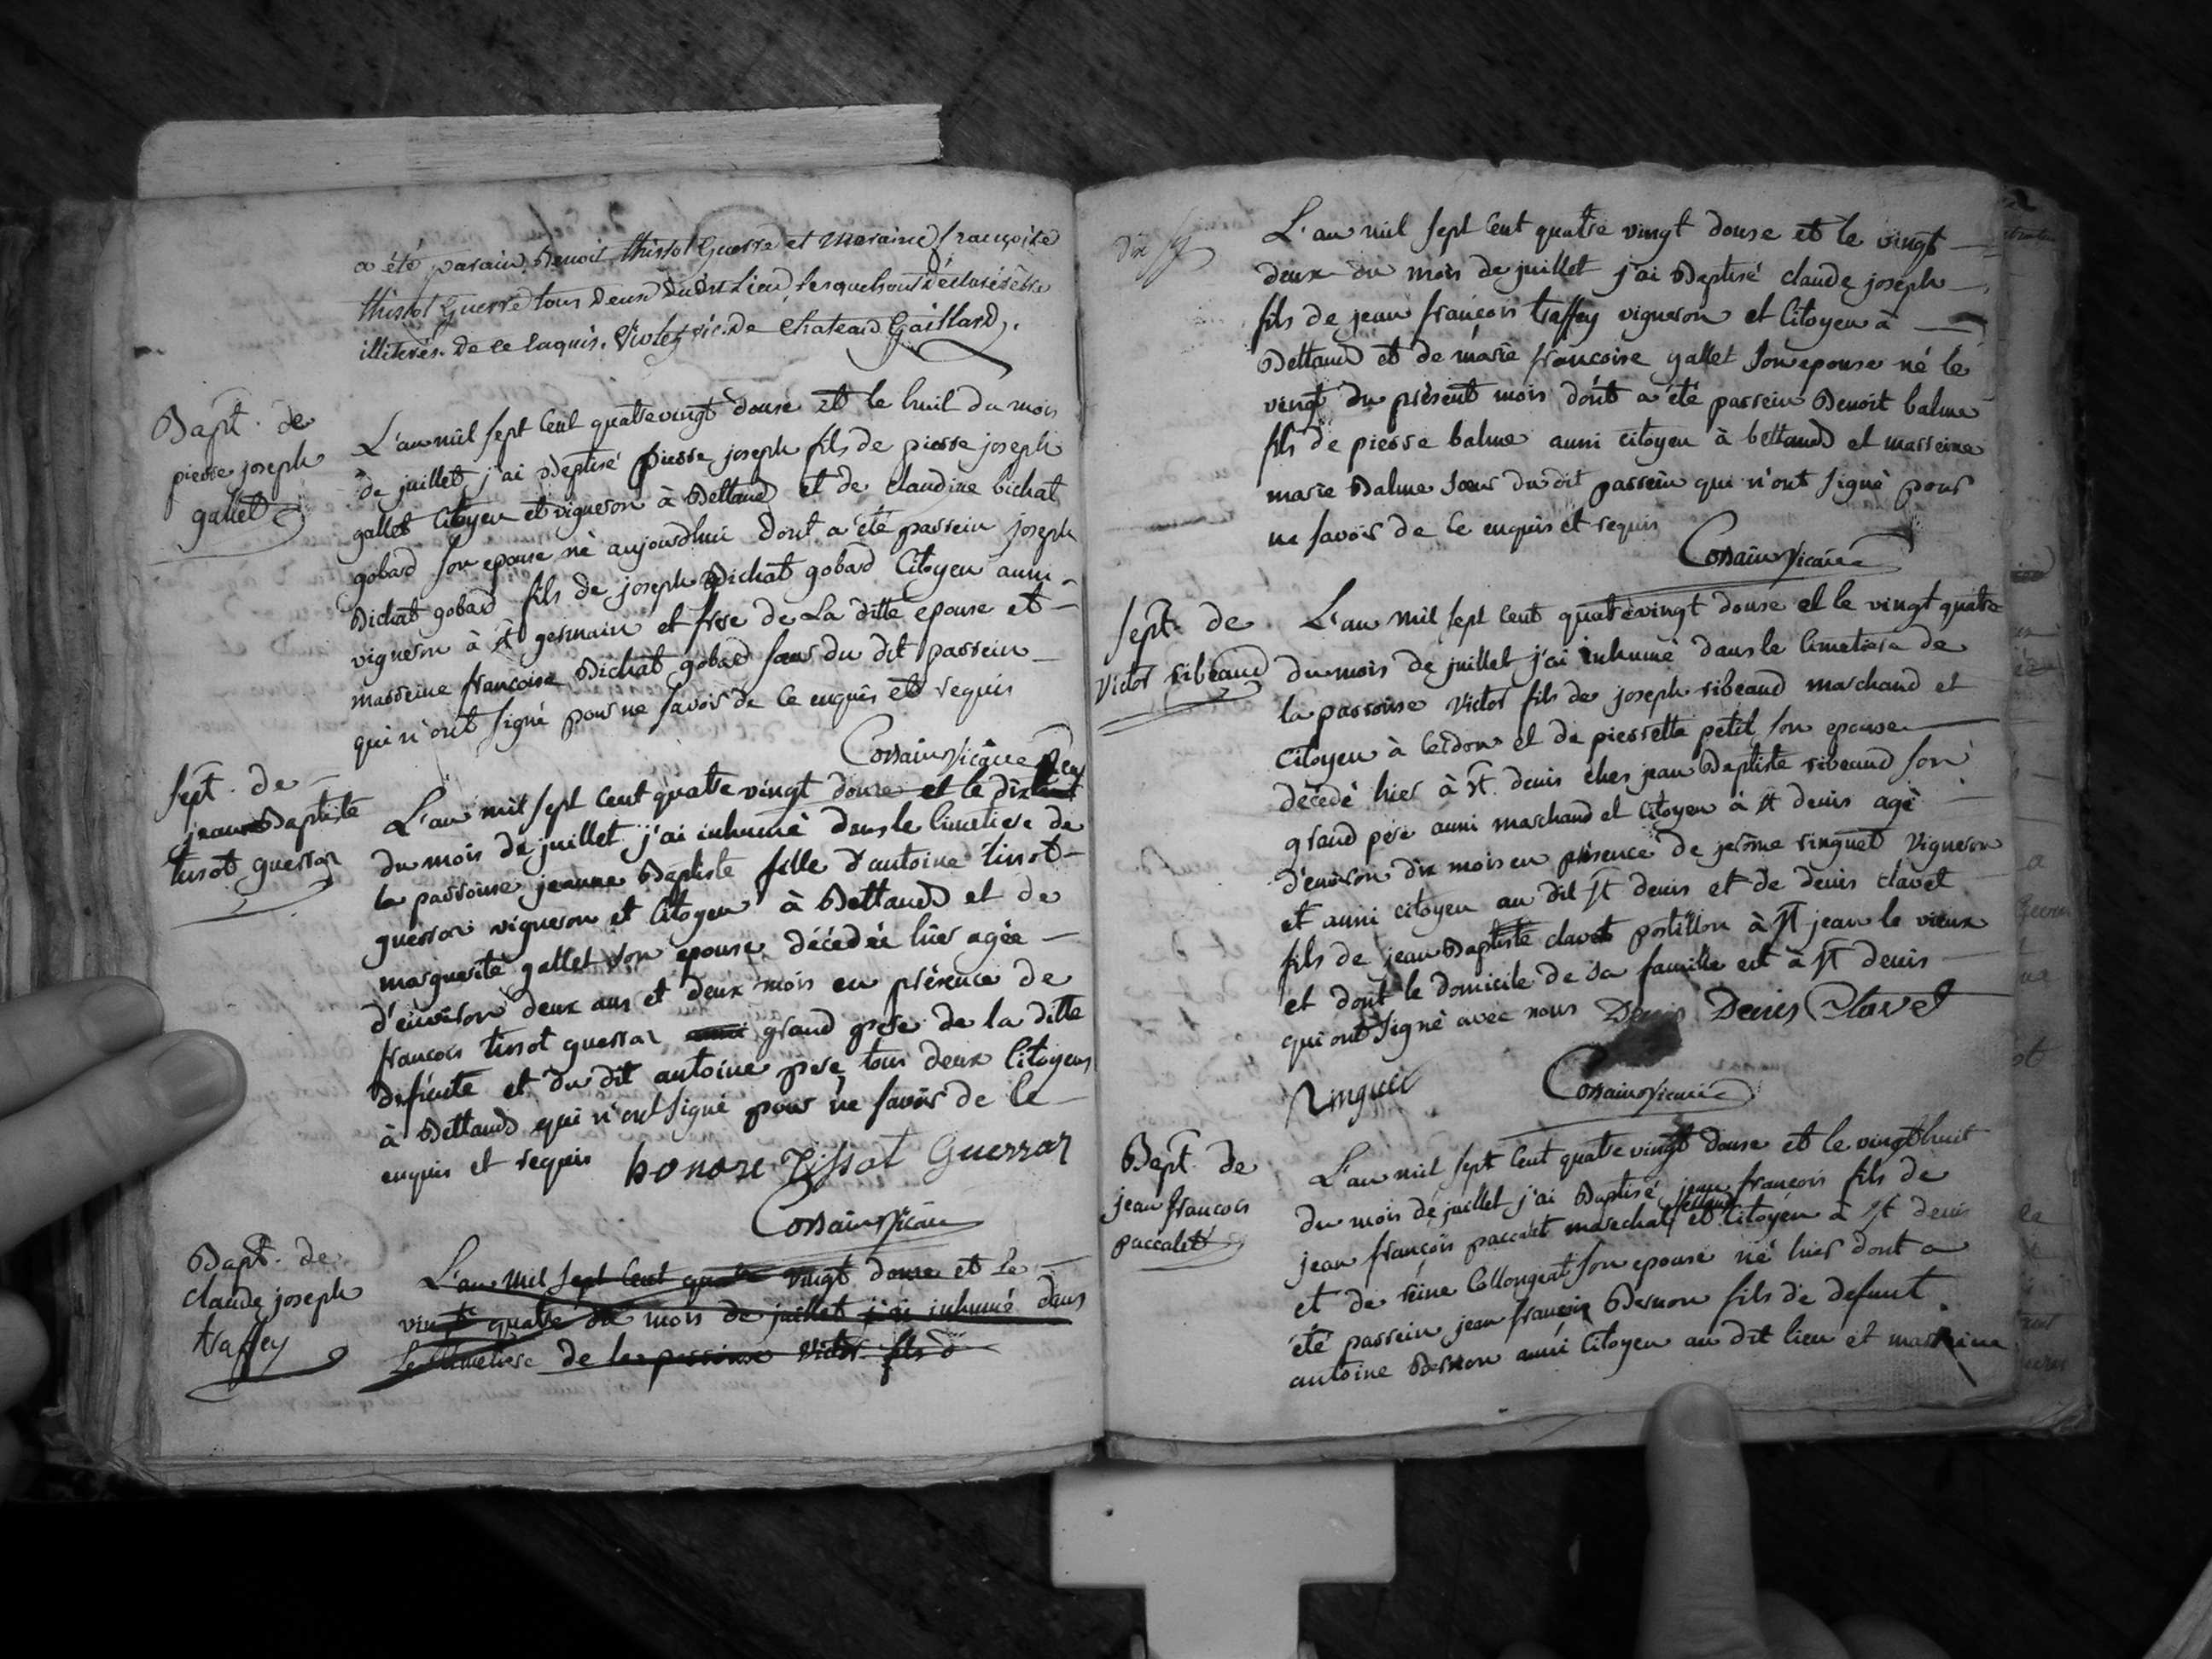 a été parain Benoit thissot Guerre et Maraine françoise
thissot Guerre tous deux dudit Lieu, lesquels ont déclaré être
illiterés. de ce enquis. Violet vic. de Chateau Gaillard.
Bapt. de
pierre joseph
gallet
L'an mil sept cent quatrevingt douse et le huit du mois
de juillet j'ai Baptisé pierre joseph fils de pierre joseph
gallet Citoyen et vigneron à Bettand et de claudine bichat
gobard son epouse né aujourdhui dont a été parrein joseph
Bichat gobard fils de joseph Bichat gobard Citoyen aussi
vigneron à St germain et frere de La ditte epouse et
marreine francoise Bichat gobard soeur du dit parrein
qui n'ont signé pour ne savoir de ce enquis et requis
Cossain Vicaire
sept. de
jeanne Baptiste
tissot guerraz
L'an mil sept cent quatre vingt douse et le dix
du mois de juillet j'ai inhumé dans le cimetiere de
la parroisse jeanne Baptiste fille d'antoine tissot
guerraz vigneron et Citoyen à Bettand et de
marguerite gallet son epouse décédée hier agée
d'environ deux ans et deux mois en présence de
francois tissot guerraz grand pere de la ditte
defunte et du dit antoine pere tous deux Citoyens
à Bettand qui n'ont signé pour ne savoir de ce
enquis et requis honore Tissot Guerraz
Cossain Vicair
Bapt. de
claude joseph
traffey
L'an mil sept cent quatre vingt douse et le
vint quatre du mois de juillet j'ai inhumé dans
Le cimetiere de la parroisse Victor fils d
L'an mil sept cent quatre vingt douse et le vingt
deux du mois de juillet j'ai Baptisé claude joseph
fils de jean françois traffey vigneron et Citoyen à
Bettand et de marie francoise gallet son epouse né le
vingt du présent mois dont a été parrein Benoit balme
fils de pierre balme aussi citoyen à bettand et marreine
marie Balme soeur du dit parrein qui n'ont signé pour
ne savoir de ce enquis et requis
Cossain Vicaire
sept. de
Victor ribeaud
L'an mil sept cent quatrevingt douse et le vingt quatre
du mois de juillet j'ai inhumé dans le cimetiere de
la parroisse Victor fils de joseph ribeaud marchand et
Citoyen à Cerdon et de pierrette petit son epouse
décédé hier à St denis ches jean Baptiste ribeaud son
grand pére aussi marchand et Citoyen à St denis agé
d'environ dix mois en présence de jerôme ringuet Vigneron
et aussi citoyen au dit St denis et de denis clavet
fils de jean Baptiste clavet postillon à St jean le vieux
et dont le domicile de sa famille est à St denis
qui ont signé avec nous Denis Denis Clavet
Ringuet
Cossain Vicaire
Bapt. de
jean francois
paccalet
L'an mil sept cent quatre vingt douse et le vingt huit
du mois de juillet j'ai Baptisé jean françois fils de
jean françois paccalet marechal et Citoyen à St denis
et de reine Collongeat son epouse né hier dont a
été parrein jean françois Bernon fils de defunt
antoine Bernon aussi Citoyen au dit lieu et marreine